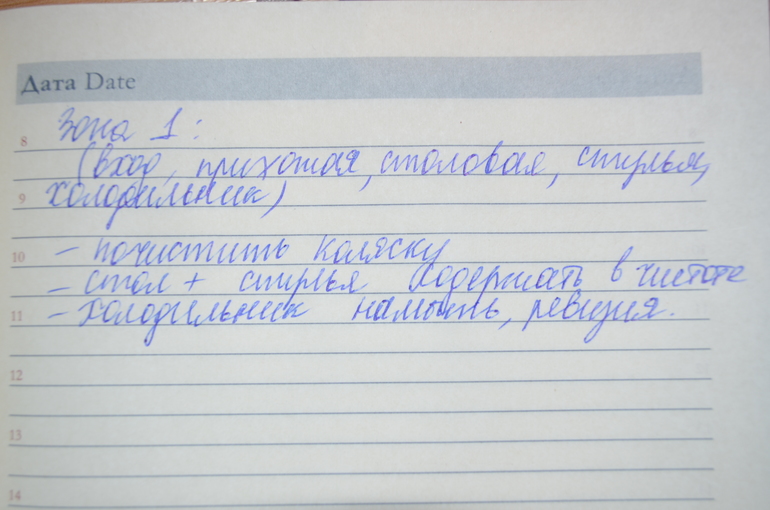 Дата Date
8 Зона 1:
(вход, прихожая, столовая, стулья,
9 холодильник)
10 - почистить коляску
- стол + стулья содержать в чистоте
11 - холодильник намыть, ревизия.
12
13
14